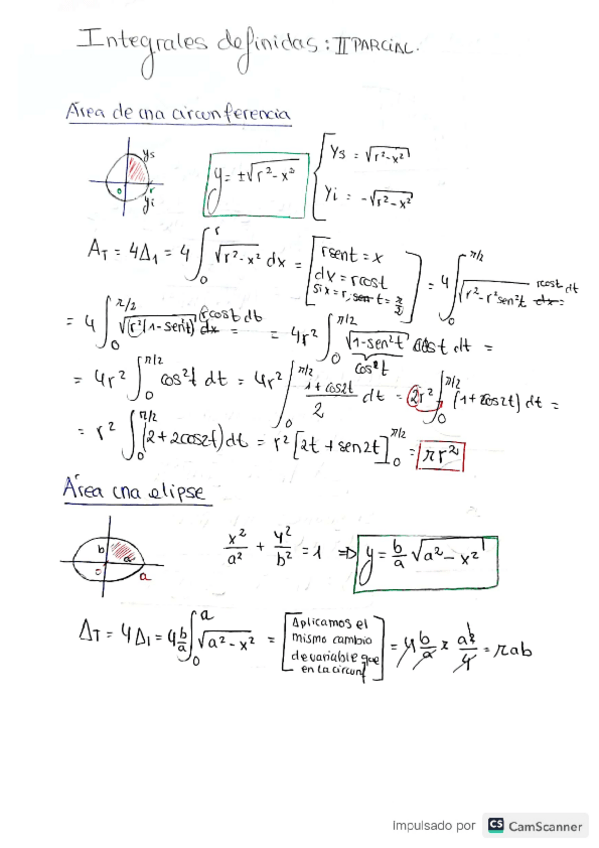 Integrales definidas: II PARCIAL.
Área de una circunferencia
ys
o r
yi
y = ±√r²-x²
ys = √r²-x²
yi = -√r²-x²
A_T = 4Δ₁ = 4 ∫₀^r √r²-x² dx = [rsent = x
dx = rcost
si x = r, sen t = π/2] = 4 ∫₀^π/2 √r²-r²sen²t rcost dt dx =
= 4 ∫₀^π/2 √r²(1-sen²t) rcost dt dx = = 4r² ∫₀^π/2 √1-sen²t cost dt =
cos²t
= 4r² ∫₀^π/2 cos²t dt = 4r² ∫₀^π/2 1+cos2t / 2 dt = 2r² ∫₀^π/2 (1+cos2t) dt =
= r² ∫₀^π/2 (2+2cos2t) dt = r² [2t + sen2t]₀^π/2 = πr²
Área una elipse
b
o a
x²/a² + y²/b² = 1 ⇒ y = b/a √a²-x²
Δ_T = 4Δ₁ = 4 b/a ∫₀^a √a²-x² = [Aplicamos el
mismo cambio
de variable que
en la circunf] = 4 b/a x
= πab
Impulsado por CS CamScanner